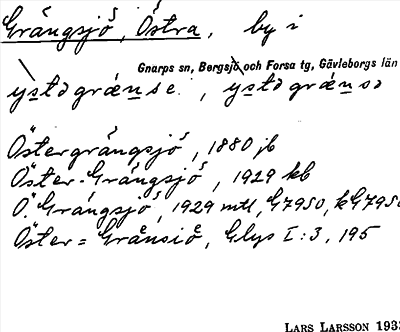 Grängsjö, Östra, by i
Gnarps sn, Bergsjö och Forsa tg, Gävleborgs län
Östergrängsjö, 1880 jb
Öster-Grängsjö, 1929 kb
Ö. Grängsjö, 1929 mtl, G7950, kG7950
Öster=Grånsiö, Glys I:3, 195
LARS LARSSON 193